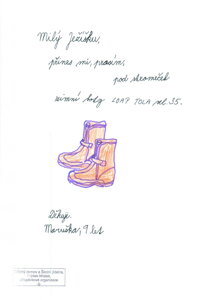 Milý Ježíšku,
přines mi, prosím,
pod stromeček
zimní boty LOAP TOLA vel 35.
Děkuji.
Maruška, 9 let